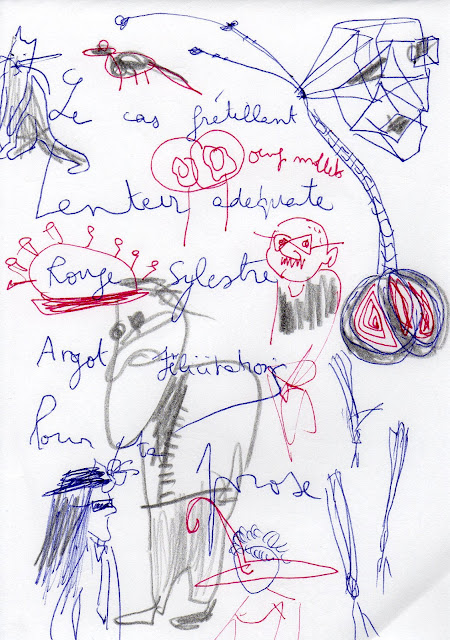 Le cas frétillant
oeufs mollets
Lenteur adéquate
Rouge Sylestre
Argot félicitations
Pour ta
prose